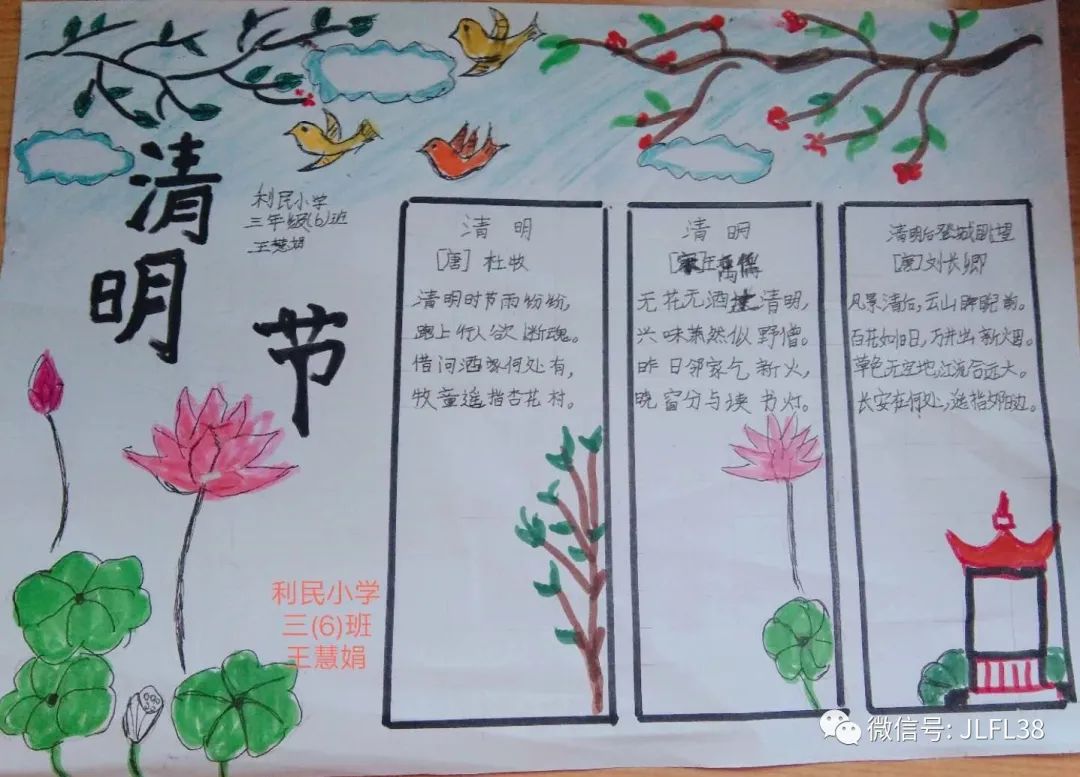 清明节
利民小学
三年级(6)班
王慧娟
清明
[唐]杜牧
清明时节雨纷纷，
路上行人欲断魂。
借问酒家何处有，
牧童遥指杏花村。
清明
王禹偁
无花无酒过清明，
兴味萧然似野僧。
昨日邻家气新火，
晓窗分与读书灯。
清明后登城眺望
[唐]刘长卿
风景清后，云山睥睨前。
百花如旧日，万井出新烟。
草色无空地，江流合远天。
长安在何处，遥指夕阳边。
利民小学
三(6)班
王慧娟
微信号: JLFL38